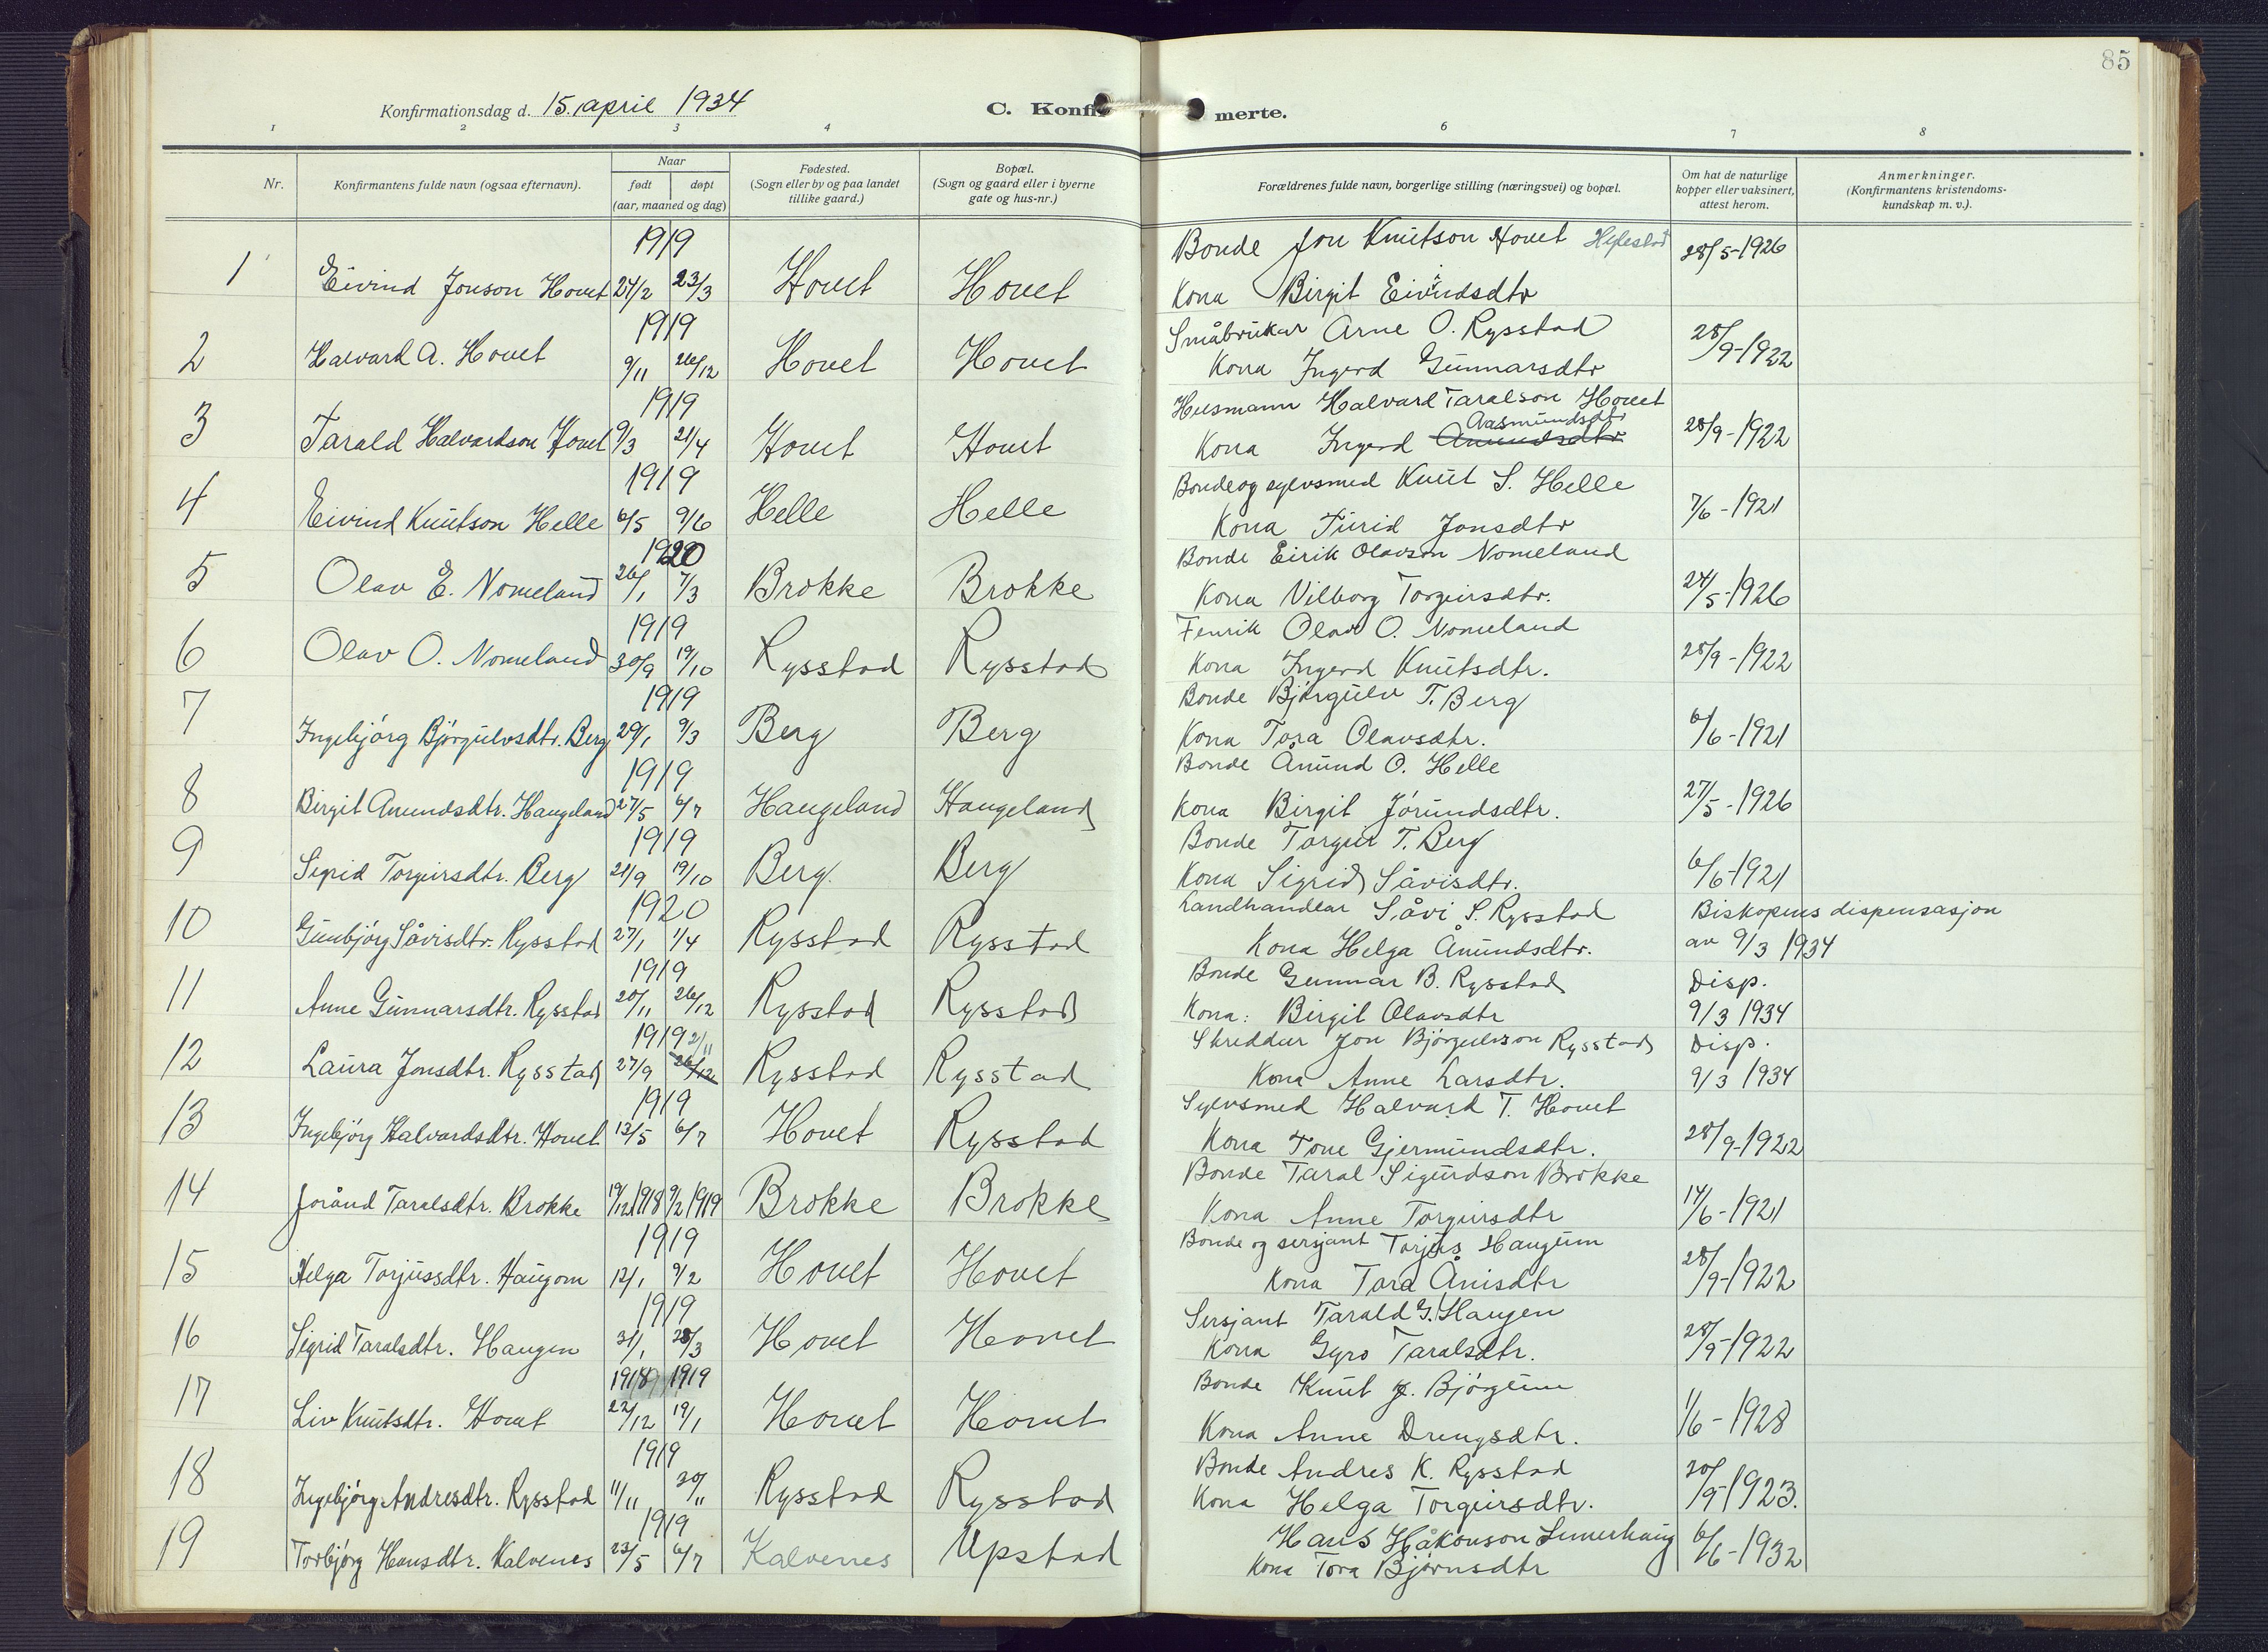 85
Konfirmationsdag d. 15. april 1934
C. Konfi
merte.
1 2 3 4 6 7 8
Nr.
Konfirmantens fulde navn (ogsaa efternavn).
Naar
født døpt
(aar, maaned og dag)
Fødested.
(Sogn eller by og paa landet
tillike gaard.)
Bopæl.
(Sogn og gaard eller i byerne
gate og hus-nr.)
Forældrenes fulde navn, borgerlige stilling (næringsvei) og bopæl.
Om hat de naturlige
kopper eller vaksinert,
attest herom.
Anmerkninger.
(Konfirmantens kristendoms-
kundskap m. v.).
1919 Bonde Jon Knutson Hovet Hylestad 28/5-1926
1 Eivind Jonson Hovet 24/2 23/3 Hovet Hovet Kona Birgit Eivindsdtr
1919 Småbrukar Arne O. Rysstad
2 Halvard A. Hovet 9/11 26/12 Hovet Hovet Kona Ingerd Gunnarsdtr 28/9-1922
1919 Husmann Halvard Taralson Hovet
Aasmundsdtr
3 Tarald Halvardson Hovet 9/3 21/4 Hovet Hovet Kona Ingerd Anundsdtr 28/9-1922
1919 Bonde og sylvsmed Knut S. Helle
4 Eivind Knutson Helle 6/5 9/6 Helle Helle Kona Turid Jonsdtr 7/6-1921
1920 Bonde Eirik Olavson Nomeland
5 Olav E. Nomeland 26/1 7/3 Brokke Brokke Kona Vilborg Torgeirsdtr. 24/5-1926
1919 Fenrik Olav O. Nomeland
6 Olav O. Nomeland 30/9 19/10 Rysstad Rysstad Kona Ingerd Knutsdtr. 28/9-1922
1919 Bonde Bjørgulv T. Berg
7 Ingebjørg Bjørgulvsdtr. Berg 29/1 9/3 Berg Berg Kona Tora Olavsdtr. 6/6-1921
1919 Bonde Ånund O. Helle
8 Birgit Anundsdtr. Haugeland 27/5 6/7 Haugeland Haugeland Kona Birgit Jórundsdtr. 27/5-1926
1919 Bonde Torgeir T. Berg
9 Sigrid Torgeirsdtr. Berg 21/9 19/10 Berg. Berg Kona Sigrid Såvisdtr. 6/6-1921
1920 Landhandlar Såvi S. Rysstad Biskopens dispensasjon
10 Gunbjørg Såvisdtr. Rysstad 27/1 1/4 Rysstad Rysstad Kona Helga Ånundsdtr. av 9/3 1934
1919 Bonde Gunnar B. Rysstad Disp.
11 Anne Gunnarsdtr. Rysstad 20/11 26/12 Rysstad Rysstad Kona: Birgit Olavsdtr 9/3 1934
1919 2/11 Skreddar Jon Bjørgulvson Rysstad Disp.
12 Laura Jonsdtr. Rysstad 27/9 26/12 Rysstad Rysstad Kona Anne Larsdtr. 9/3 1934
1919 Sylvsmed Halvard T. Hovet
13 Ingebjørg Halvardsdtr. Hovet 13/5 6/7 Hovet Rysstad Kona Tone Gjermundsdtr. 28/9-1922
Bonde Taral Sigurdson Brokke
14 Joránd Taralsdtr. Brokke 19/12 1918 9/2 1919 Brokke Brokke Kona Anne Torgeirsdtr 14/6-1921
1919 Bonde og sersjant Torjus Haugum
15 Helga Torjussdtr. Haugom 12/1 9/2 Hovet Hovet Kona Tora Ånisdtr 28/9-1922
1919 Sersjant Tarald G. Haugen
16 Sigrid Taralsdtr. Haugen 31/1 28/3 Hovet Hovet Kona Gyro Taralsdtr. 28/9-1922
1918 1919 Bonde Knut Bjørgum
17 Liv Knutsdtr. Hovet 22/12 19/1 Hovet Hovet Kona Anne Drengsdtr. 1/6-1928
1919 Bonde Andres K. Rysstad
18 Ingebjørg Andresdtr. Rysstad 11/11 30/11 Rysstad Rysstad Kona Helga Torgeirsdtr. 20/9-1923.
1919 Hans Håkonson
19 Torbjørg Hansdtr. Kalvenes 23/5 6/7 Kalvenes Upstad Kona Tora Bjørnsdtr 6/6-1932